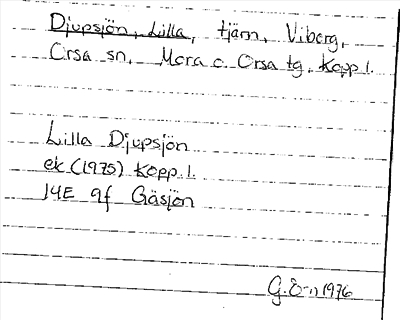 Djupsjön, Lilla, tjärn, Viberg,
Orsa sn, Mora o. Orsa tg. Kopp l.
Lilla Djupsjön
ek (1975) Kopp. l.
14E 9f Gäsjön
G. Ö-n 1976